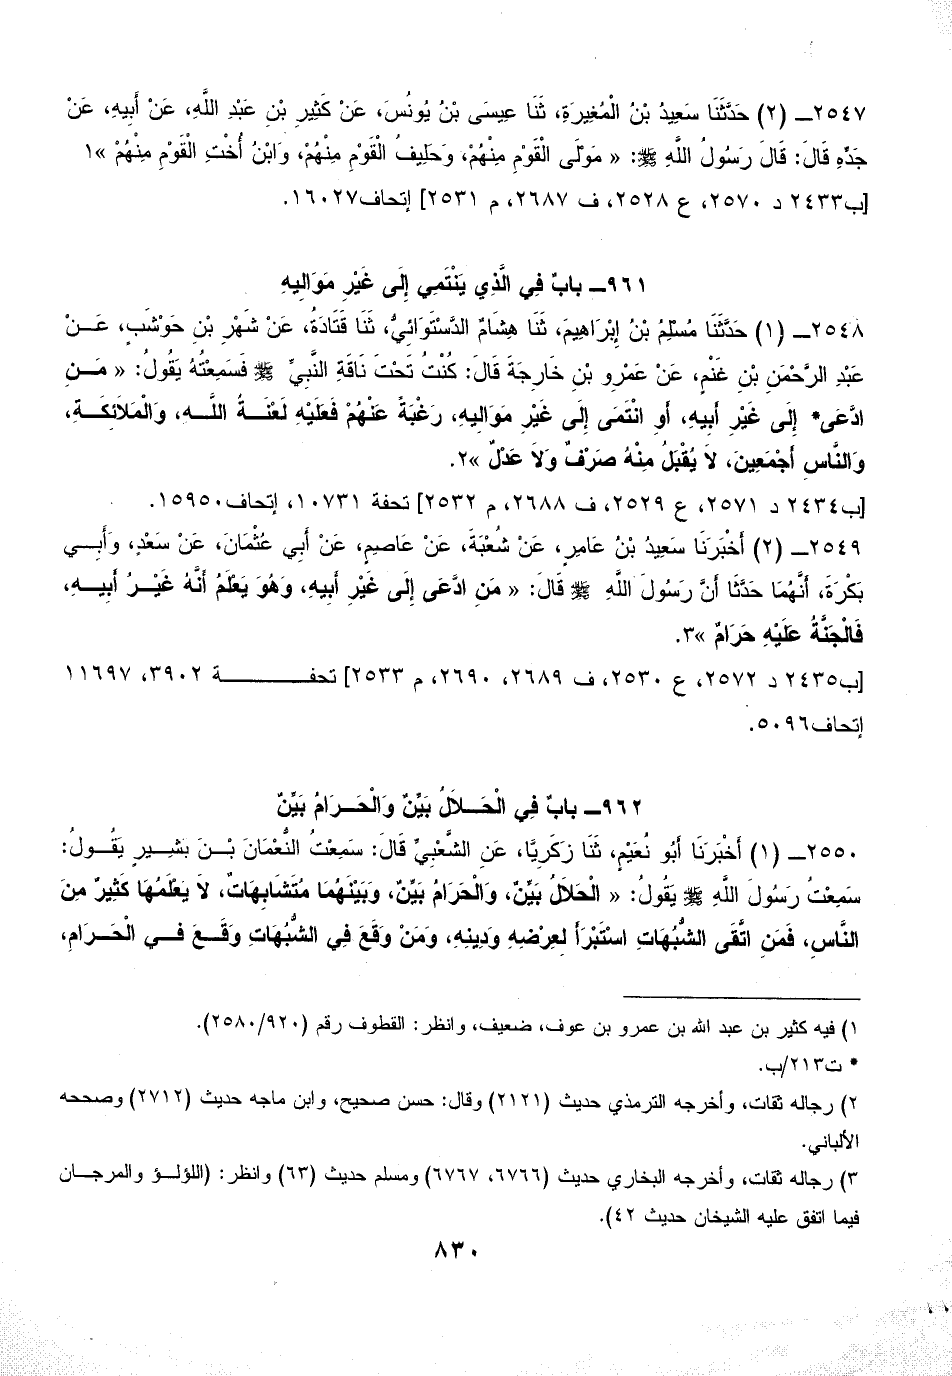 ٢٥٤٧ــ (٢) حَدَّثَنَا سَعِيدُ بْنُ الْمُغِيرَةِ، ثَنَا عِيسَى بْنُ يُونُسَ، عَنْ كَثِيرِ بْنِ عَبْدِ اللَّهِ، عَنْ أَبِيهِ، عَنْ
جَدِّهِ قَالَ: قَالَ رَسُولُ اللَّهِ ﷺ: « مَوْلَى الْقَوْمِ مِنْهُمْ، وَحَلِيفُ الْقَوْمِ مِنْهُمْ، وَابْنُ أُخْتِ الْقَوْمِ مِنْهُمْ »١
[ب٢٤٣٣ د ٢٥٧٠، ع ٢٥٢٨، ف ٢٦٨٧، م ٢٥٣١] إتحاف١٦٠٢٧.
٩٦١ــ بابٌ فِي الَّذِي يَنْتَمِي إِلَى غَيْرِ مَوَالِيهِ
٢٥٤٨ــ (١) حَدَّثَنَا مُسْلِمُ بْنُ إِبْرَاهِيمَ، ثَنَا هِشَامٌ الدَّسْتَوَائِيُّ، ثَنَا قَتَادَةُ، عَنْ شَهْرِ بْنِ حَوْشَبٍ، عَـــنْ
عَبْدِ الرَّحْمَنِ بْنِ غَنْمٍ، عَنْ عَمْرِو بْنِ خَارِجَةَ قَالَ: كُنْتُ تَحْتَ نَاقَةِ النَّبِيِّ ﷺ فَسَمِعْتُهُ يَقُولُ: « مَـنِ
ادَّعَى* إِلَى غَيْرِ أَبِيهِ، أَوِ انْتَمَى إِلَى غَيْرِ مَوَالِيهِ، رَغْبَةً عَنْهُمْ فَعَلَيْهِ لَعْنَــةُ اللَّـــهِ، وَالْمَلاَئِكَــةِ،
وَالنَّاسِ أَجْمَعِينَ، لاَ يُقْبَلُ مِنْهُ صَرْفٌ وَلاَ عَدْلٌ »٢.
[ب٢٤٣٤ د ٢٥٧١، ع ٢٥٢٩، ف ٢٦٨٨، م ٢٥٣٢] تحفة ١٠٧٣١، إتحاف١٥٩٥٠.
٢٥٤٩ــ (٢) أَخْبَرَنَا سَعِيدُ بْنُ عَامِرٍ، عَنْ شُعْبَةَ، عَنْ عَاصِمٍ، عَنْ أَبِي عُثْمَانَ، عَنْ سَعْدٍ، وَأَبِـــي
بَكْرَةَ، أَنَّهُمَا حَدَّثَا أَنَّ رَسُولَ اللَّهِ ﷺ قَالَ: « مَنِ ادَّعَى إِلَى غَيْرِ أَبِيهِ، وَهُوَ يَعْلَمُ أَنَّهُ غَيْــرُ أَبِيــهِ،
فَالْجَنَّةُ عَلَيْهِ حَرَامٌ »٣.
[ب٢٤٣٥ د ٢٥٧٢، ع ٢٥٣٠، ف ٢٦٨٩، ٢٦٩٠، م ٢٥٣٣] تحفـــــــــة ٣٩٠٢، ١١٦٩٧
إتحاف٥٠٩٦.
٩٦٢ــ بابٌ فِي الْحَـــلاَلُ بَيِّنٌ وَالْحَـــرَامُ بَيِّنٌ
٢٥٥٠ــ (١) أَخْبَرَنَا أَبُو نُعَيْمٍ، ثَنَا زَكَرِيَّا، عَنِ الشَّعْبِيِّ قَالَ: سَمِعْتُ النُّعْمَانَ بْـــنَ بَشِـــيرٍ يَقُـــولُ:
سَمِعْتُ رَسُولَ اللَّهِ ﷺ يَقُولُ: « الْحَلاَلُ بَيِّنٌ، وَالْحَرَامُ بَيِّنٌ، وَبَيْنَهُمَا مُتَشَابِهَاتٌ، لاَ يَعْلَمُهَا كَثِيرٌ مِنَ
النَّاسِ، فَمَنِ اتَّقَى الشُّبُهَاتِ اسْتَبْرَأَ لِعِرْضِهِ وَدِينِهِ، وَمَنْ وَقَعَ فِي الشُّبُهَاتِ وَقَــعَ فــي الْحَـــرَامِ،
١) فيه كثير بن عبد الله بن عمرو بن عوف، ضعيف، وانظر: القطوف رقم (٢٥٨٠/٩٢٠).
* ت٢١٣/ب.
٢) رجاله ثقات، وأخرجه الترمذي حديث (٢١٢١) وقال: حسن صحيح، وابن ماجه حديث (٢٧١٢) وصححه
الألباني.
٣) رجاله ثقات، وأخرجه البخاري حديث (٦٧٦٦، ٦٧٦٧) ومسلم حديث (٦٣) وانظر: (اللؤلــؤ والمرجــان
فيما اتفق عليه الشيخان حديث ٤٢).
٨٣٠